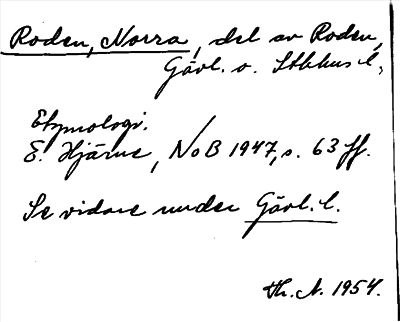 Roden, Norra, del av Roden,
Gävl. o. Sthlms l.,
Etymologi.
E. Hjärne, NoB 1947, s. 63 ff.
Se vidare under Gävl. l.
Th. A. 1954.